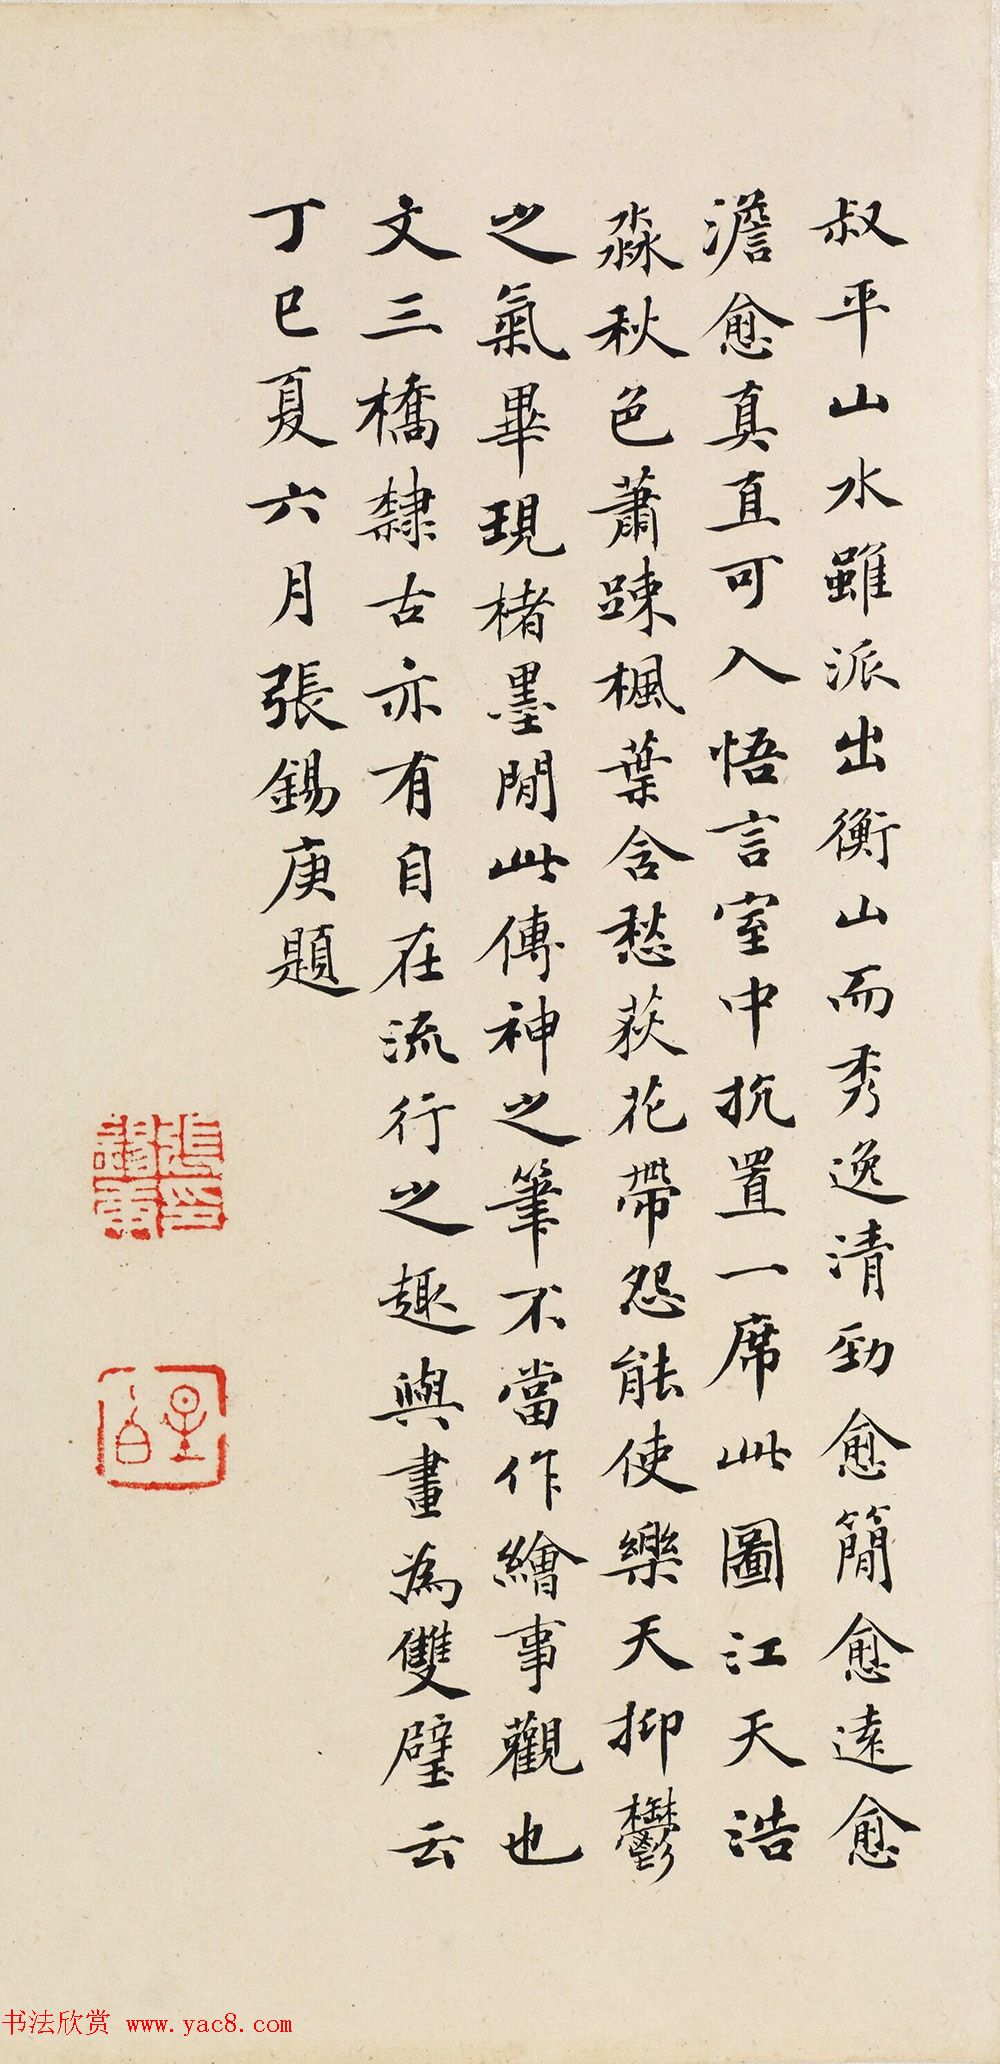 叔平山水雖派出衡山而秀逸清勁愈簡愈遠愈
澹愈真直可入悟言室中抗置一席此圖江天浩
淼秋色蕭踈楓葉含愁荻花帶怨能使樂天抑鬱
之氣畢現楮墨間此傳神之筆不當作繪事觀也
文三橋隸古亦有自在流行之趣與畫為雙璧云
丁巳夏六月張錫庚題
书法欣赏 www.yac8.com